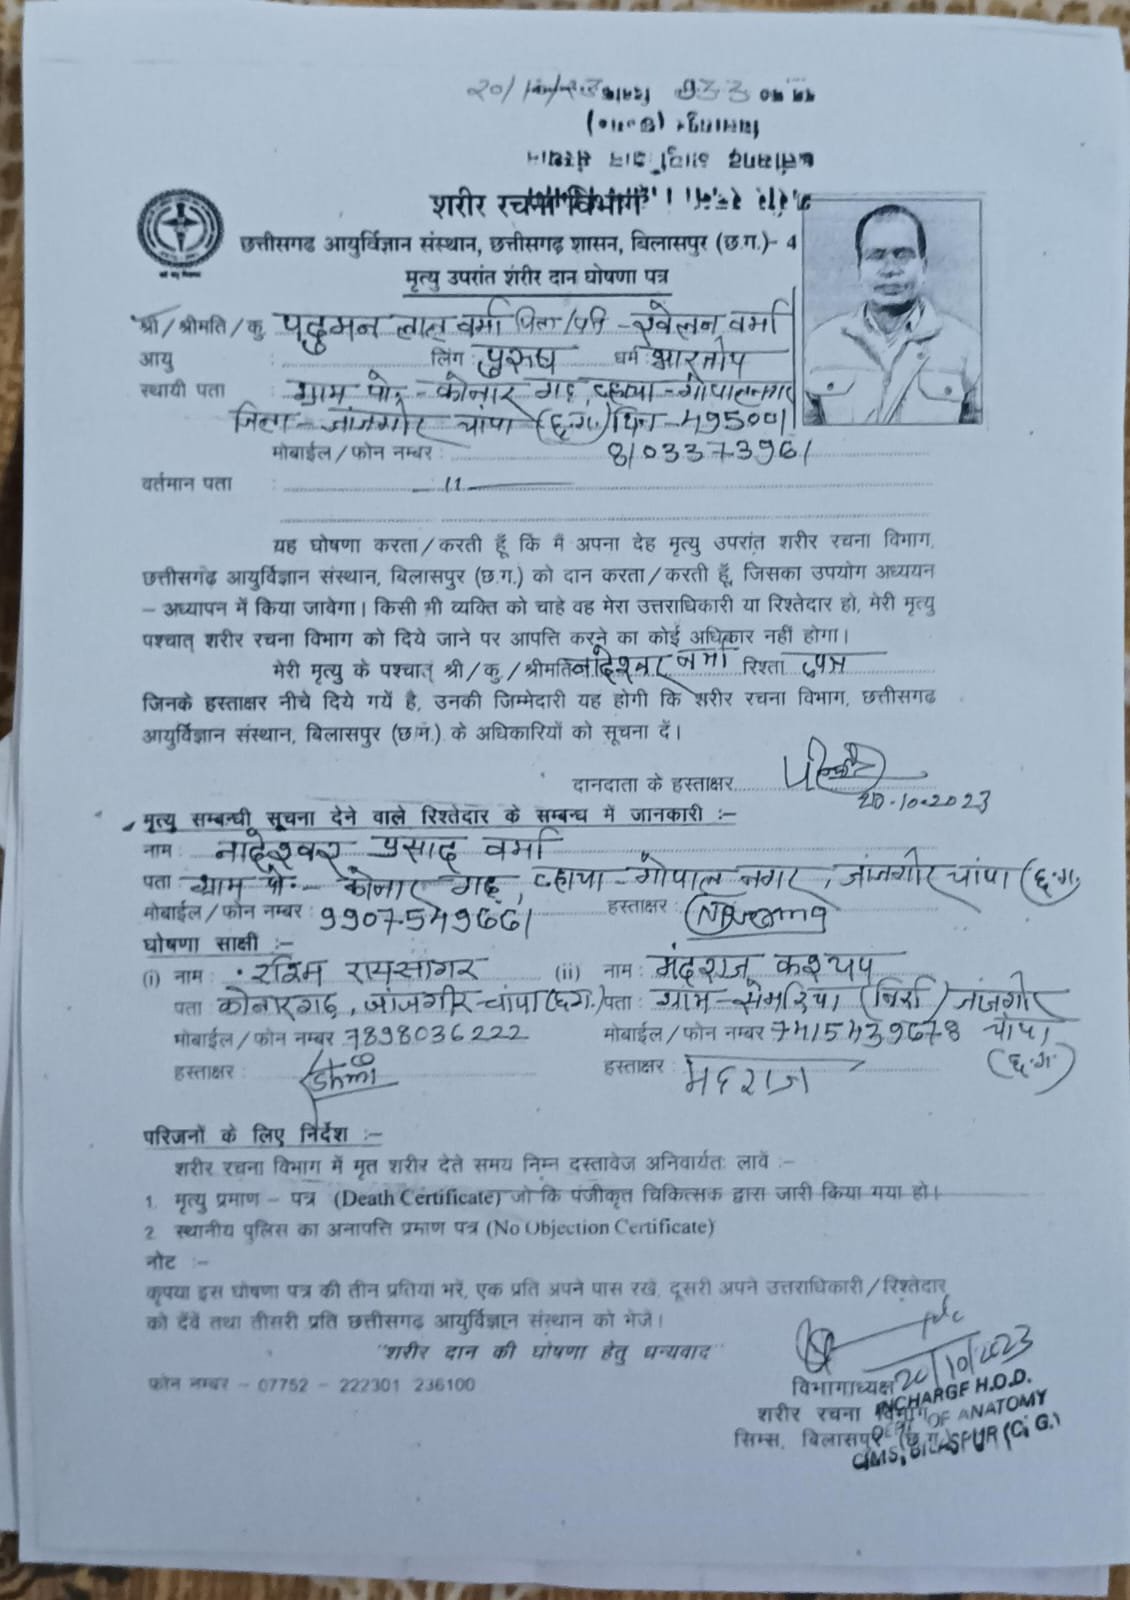 क्र० 933 दिनांक 20/10/23
बिलासपुर (छ०ग०)
छत्तीसगढ़ आयुर्विज्ञान संस्थान
शरीर रचना विभाग
छत्तीसगढ आयुर्विज्ञान संस्थान, छत्तीसगढ़ शासन, बिलासपुर (छ.ग.)- 4
मृत्यु उपरांत शरीर दान घोषणा पत्र
श्री/श्रीमति/कु पदुमन लाल वर्मा पिता/पति - रवेलन वर्मा
आयु लिंग : पुरुष धर्म भारतीय
स्थायी पता ग्राम पो. - कोनार गढ़, व्हाया - गोपालनगर
जिला - जांजगीर चांपा (छ.ग.) पिन - 495001
मोबाईल/फोन नम्बर : 8103373961
वर्तमान पता — 11 —
यह घोषणा करता/करती हूँ कि मैं अपना देह मृत्यु उपरांत शरीर रचना विभाग,
छत्तीसगढ़ आयुर्विज्ञान संस्थान, बिलासपुर (छ.ग.) को दान करता/करती हूँ, जिसका उपयोग अध्ययन
– अध्यापन में किया जावेगा। किसी भी व्यक्ति को चाहे वह मेरा उत्तराधिकारी या रिश्तेदार हो, मेरी मृत्यु
पश्चात् शरीर रचना विभाग को दिये जाने पर आपत्ति करने का कोई अधिकार नहीं होगा।
मेरी मृत्यु के पश्चात् श्री/कु/श्रीमति नादेश्वर वर्मा रिश्ता पुत्र
जिनके हस्ताक्षर नीचे दिये गयें है, उनकी जिम्मेदारी यह होगी कि शरीर रचना विभाग, छत्तीसगढ
आयुर्विज्ञान संस्थान, बिलासपुर (छ.ग.) के अधिकारियों को सूचना दें।
दानदाता के हस्ताक्षर
20-10-2023
मृत्यु सम्बन्धी सूचना देने वाले रिश्तेदार के सम्बन्ध में जानकारी :-
नाम : नादेश्वर प्रसाद वर्मा
पता ग्राम पो. - कोनार गढ़, व्हाया - गोपाल नगर, जांजगीर चांपा (छ.ग.
मोबाईल/फोन नम्बर : 9907549661 हस्ताक्षर :
घोषणा साक्षी :-
(i) नाम : रश्मि रायसागर (ii) नाम : मंदराज कश्यप
पता कोनारगढ़, जांजगीर-चांपा (छ.ग.) पता : ग्राम - सेमरिया (बिर्रा) जांजगीर
मोबाईल/फोन नम्बर 7898036222 मोबाईल/फोन नम्बर 7415439678 चांपा
हस्ताक्षर : हस्ताक्षर : मदराज (छ.ग.)
परिजनों के लिए निर्देश :-
शरीर रचना विभाग में मृत शरीर देते समय निम्न दस्तावेज अनिवार्यतः लावें :-
1. मृत्यु प्रमाण – पत्र (Death Certificate) जो कि पंजीकृत चिकित्सक द्वारा जारी किया गया हो।
2. स्थानीय पुलिस का अनापत्ति प्रमाण पत्र (No Objection Certificate)
नोट :-
कृपया इस घोषणा पत्र की तीन प्रतियां भरें, एक प्रति अपने पास रखें, दूसरी अपने उत्तराधिकारी/रिश्तेदार
को देंवें तथा तीसरी प्रति छत्तीसगढ़ आयुर्विज्ञान संस्थान को भेजें।
"शरीर दान की घोषणा हेतु धन्यवाद"
फोन नम्बर – 07752 – 222301, 236100
विभागाध्यक्ष 20/10/2023
शरीर रचना विभाग
सिम्स, बिलासपुर (छ.ग.)
INCHARGE H.O.D.
DEPT. OF ANATOMY
CIMS, BILASPUR (C.G.)